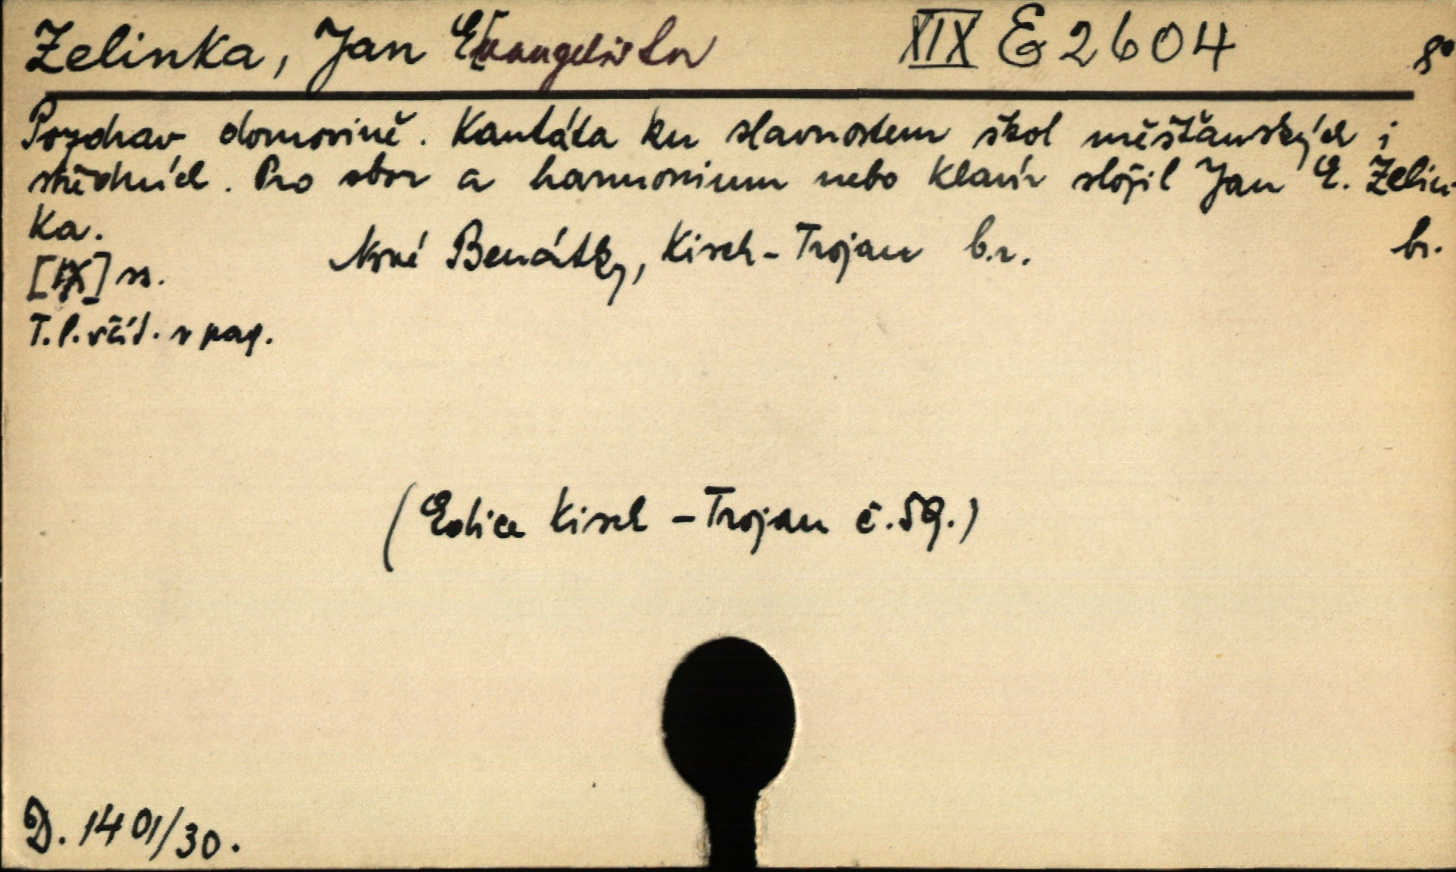 Zelinka, Jan E[vangelista XIX E 2604 8°
Pozdrav domovině. Kantáta ku slavnostem škol měšťanských i
středních. Pro sbor a harmonium nebo klavír složil Jan E. Zelin-
ka.
Nové Benátky, Kisch-Trojan b.r. br.
[IX] ss.
T.l. včít. v pag.
(Edice Kisch-Trojan č. 59.)
D. 1401/30.